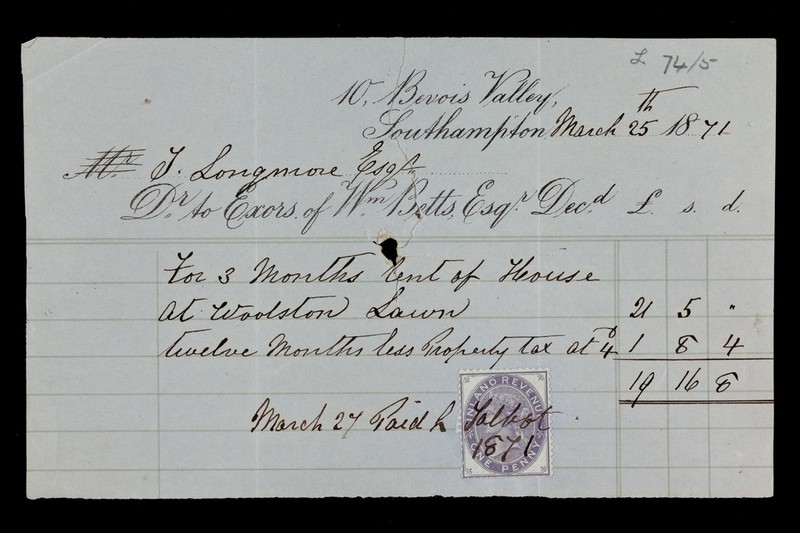 £ 74/5
10, Bevois Valley,
Southampton March 25th 1871
Mr. T. Longmore Esqr.
Dr. to Exors. of Wm. Betts, Esqr. Decd. £. s. d.
For 3 Months Rent of House
at Woolston Lawn 21 5 "
twelve Months less Property tax at 4d 1 8 4
19 16 8
March 27 Paid h Talbot
1871
INLAND REVENUE
ONE PENNY